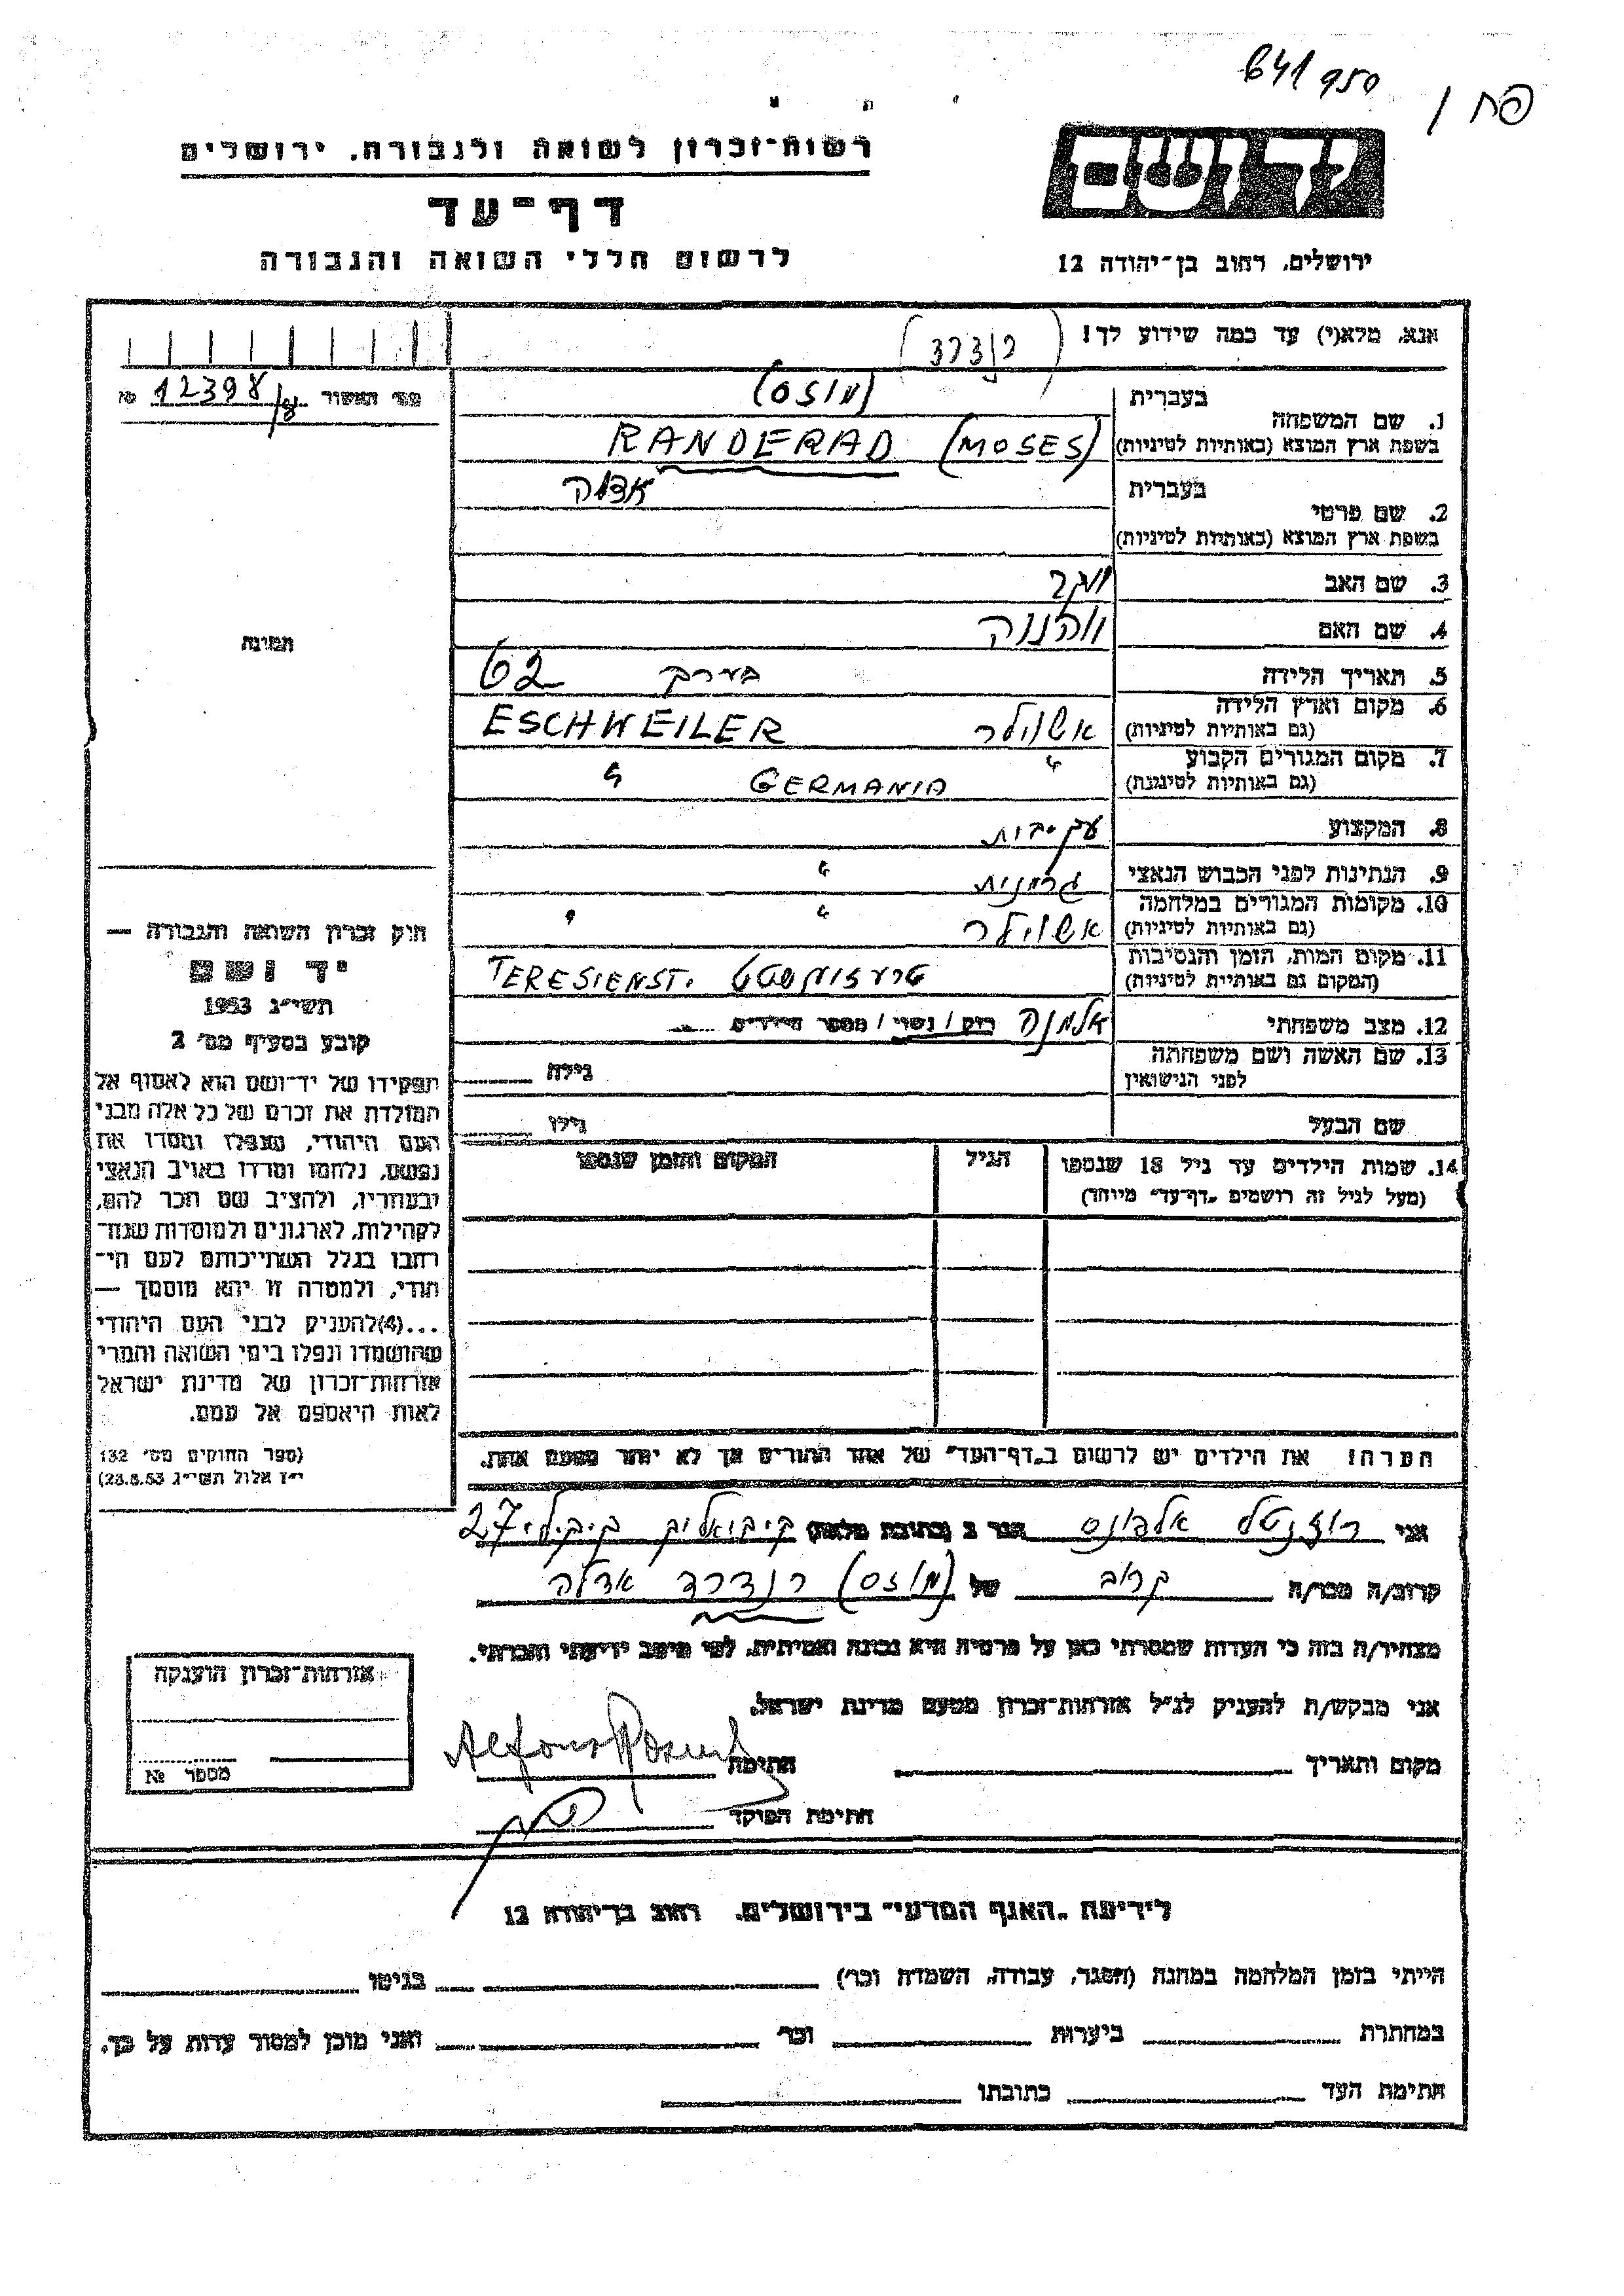 641950
פח 1
רשות־זכרון לשואה ולגבורה, ירושלים
דף־עד
לרשום חללי השואה והגבורה
יד ושם
ירושלים, רחוב בן־יהודה 12
אנא, מלא(י) עד כמה שידוע לך!
(רנדרד)
מס׳ האשור 12398/8 №
1. שם המשפחה
בעברית (מוזס)
בשפת ארץ המוצא (באותיות לטיניות) RANDERAD (MOSES)
2. שם פרטי
בעברית אדלה
בשפת ארץ המוצא (באותיות לטיניות)
3. שם האב יעקב
4. שם האם יוהנה
5. תאריך הלידה בערך 62
6. מקום וארץ הלידה אשוילר ESCHWEILER
(גם באותיות לטיניות)
7. מקום המגורים הקבוע " GERMANIA "
(גם באותיות לטיניות)
8. המקצוע עק׳ בית
9. הנתינות לפני הכבוש הנאצי גרמנית "
10. מקומות המגורים במלחמה אשוילר " "
(גם באותיות לטיניות)
11. מקום המות, הזמן והנסיבות טרעזינשטט TERESIENST.
(המקום גם באותיות לטיניות)
12. מצב משפחתי אלמנה רוק / נשוי / מספר הילדים
13. שם האשה ושם משפחתה גילה
לפני הנישואין
שם הבעל גילו
14. שמות הילדים עד גיל 18 שנספו הגיל המקום והזמן שנספו
(מעל לגיל זה רושמים „דף־עד״ מיוחד)
הערה! את הילדים יש לרשום ב„דף־העד״ של אחד ההורים אך לא יותר מפעם אחת.
תמונה
חוק זכרון השואה והגבורה —
יד ושם
תשי״ג 1953
קובע בסעיף מס׳ 2
תפקידו של יד־ושם הוא לאסוף אל
המולדת את זכרם של כל אלה מבני
העם היהודי, שנפלו ומסרו את
נפשם, נלחמו ומרדו באויב הנאצי
ובעוזריו, ולהציב שם וזכר להם,
לקהילות, לארגונים ולמוסדות שנח־
רבו בגלל השתייכותם לעם הי־
הודי, ולמטרה זו יהא מוסמך —
...(4)להעניק לבני העם היהודי
שהושמדו ונפלו בימי השואה והמרי
אזרחות־זכרון של מדינת ישראל
לאות היאספם אל עמם.
(ספר החוקים מס׳ 132
י״ז אלול תשי״ג 28.8.53)
אני רוזנטל אלפונס הגר ב (כתובת מלאה) קיביאליק 27
קרוב/ה מכר/ה קרוב של (מוזס) רנדרד אדלה
מצהיר/ה בזה כי העדות שמסרתי כאן על פרטיה היא נכונה ואמיתית, לפי מיטב ידיעתי והכרתי.
אני מבקש/ת להעניק לנ״ל אזרחות־זכרון מטעם מדינת ישראל.
מקום ותאריך חתימה Alfons Rosent
חתימת הפוקד
אזרחות־זכרון הוענקה
מספר №
לידיעת „האגף המדעי״ בירושלים, רחוב בן־יהודה 12
הייתי בזמן המלחמה במחנה (הסגר, עבודה, השמדה וכו׳) בגיטו
במחתרת ביערות וכו׳ ואני מוכן למסור עדות על כך.
חתימת העד כתובתו